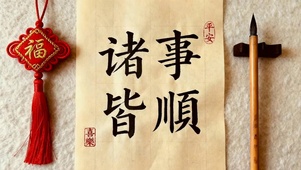 福
平安
诸事
皆順
喜樂